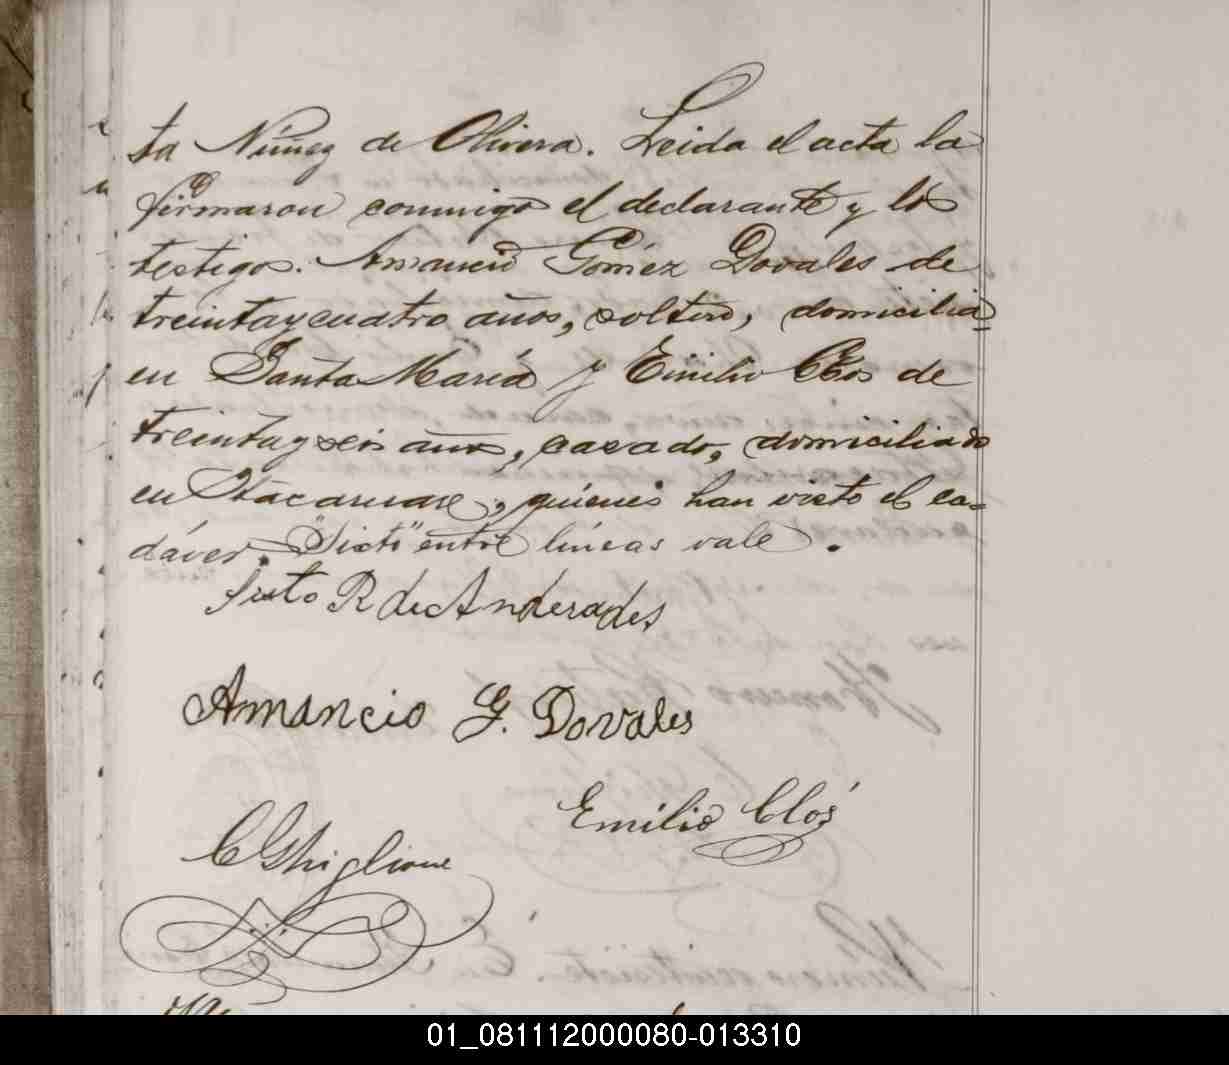 ta Núñez de Olivera. Leida el acta la
firmaron conmigo el declarante y los
testigos. Amancio Gómez Dovales de
treinta y cuatro años, soltero, domicilia=
en Santa María y Emilio Clos de
treinta y seis años, casado, domiciliado
en Itacaruaré, quienes han visto el ca=
dáver. "Sixto" entre líneas vale.
Sixto R de Anderades
Amancio G. Dovales
Emilio Clos
C Ghiglione
01_081112000080-013310